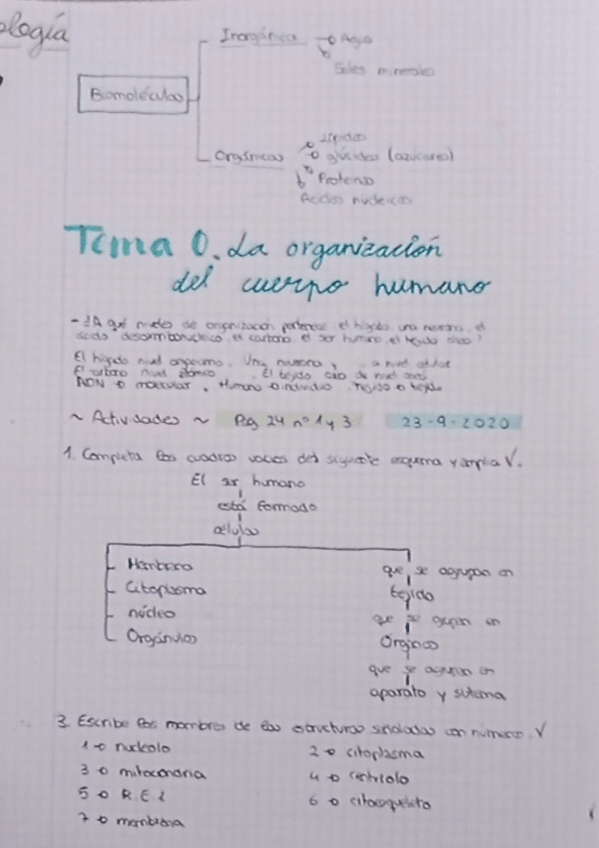 ología
Inorgánica → Agua
Sales minerales
Biomoléculas
Lípidos
Orgánicas → glúcidos (azúcares)
Proteínas
Ácidos nucleicos
Tema 0. La organización
del cuerpo humano
- ¿A qué niveles de organización pertenece el hígado, una neurona, el
ácido desoxirribonucleico, el carbono, el ser humano, el tejido óseo?
El hígado nivel organismo. Una neurona, a nivel celular
El carbono nivel atómico. El tejido óseo de nivel
ADN → molecular, Humano → individuo, tejido → tejido
~ Actividades ~ Pág 24 nº 1 y 3 23-9-2020
1. Completa los cuadros vacíos del siguiente esquema y amplía V.
El ser humano
está formado
células
Membrana
Citoplasma
núcleo
Orgánulos
que se agrupan en
tejido
que se agrupan en
Órganos
que se agrupan en
aparato y sistema
3. Escribe los nombres de las estructuras señaladas con números. V
1 → nucleolo 2 → citoplasma
3 → mitocondria 4 → centriolo
5 → R.E.L 6 → citoesqueleto
7 → membrana